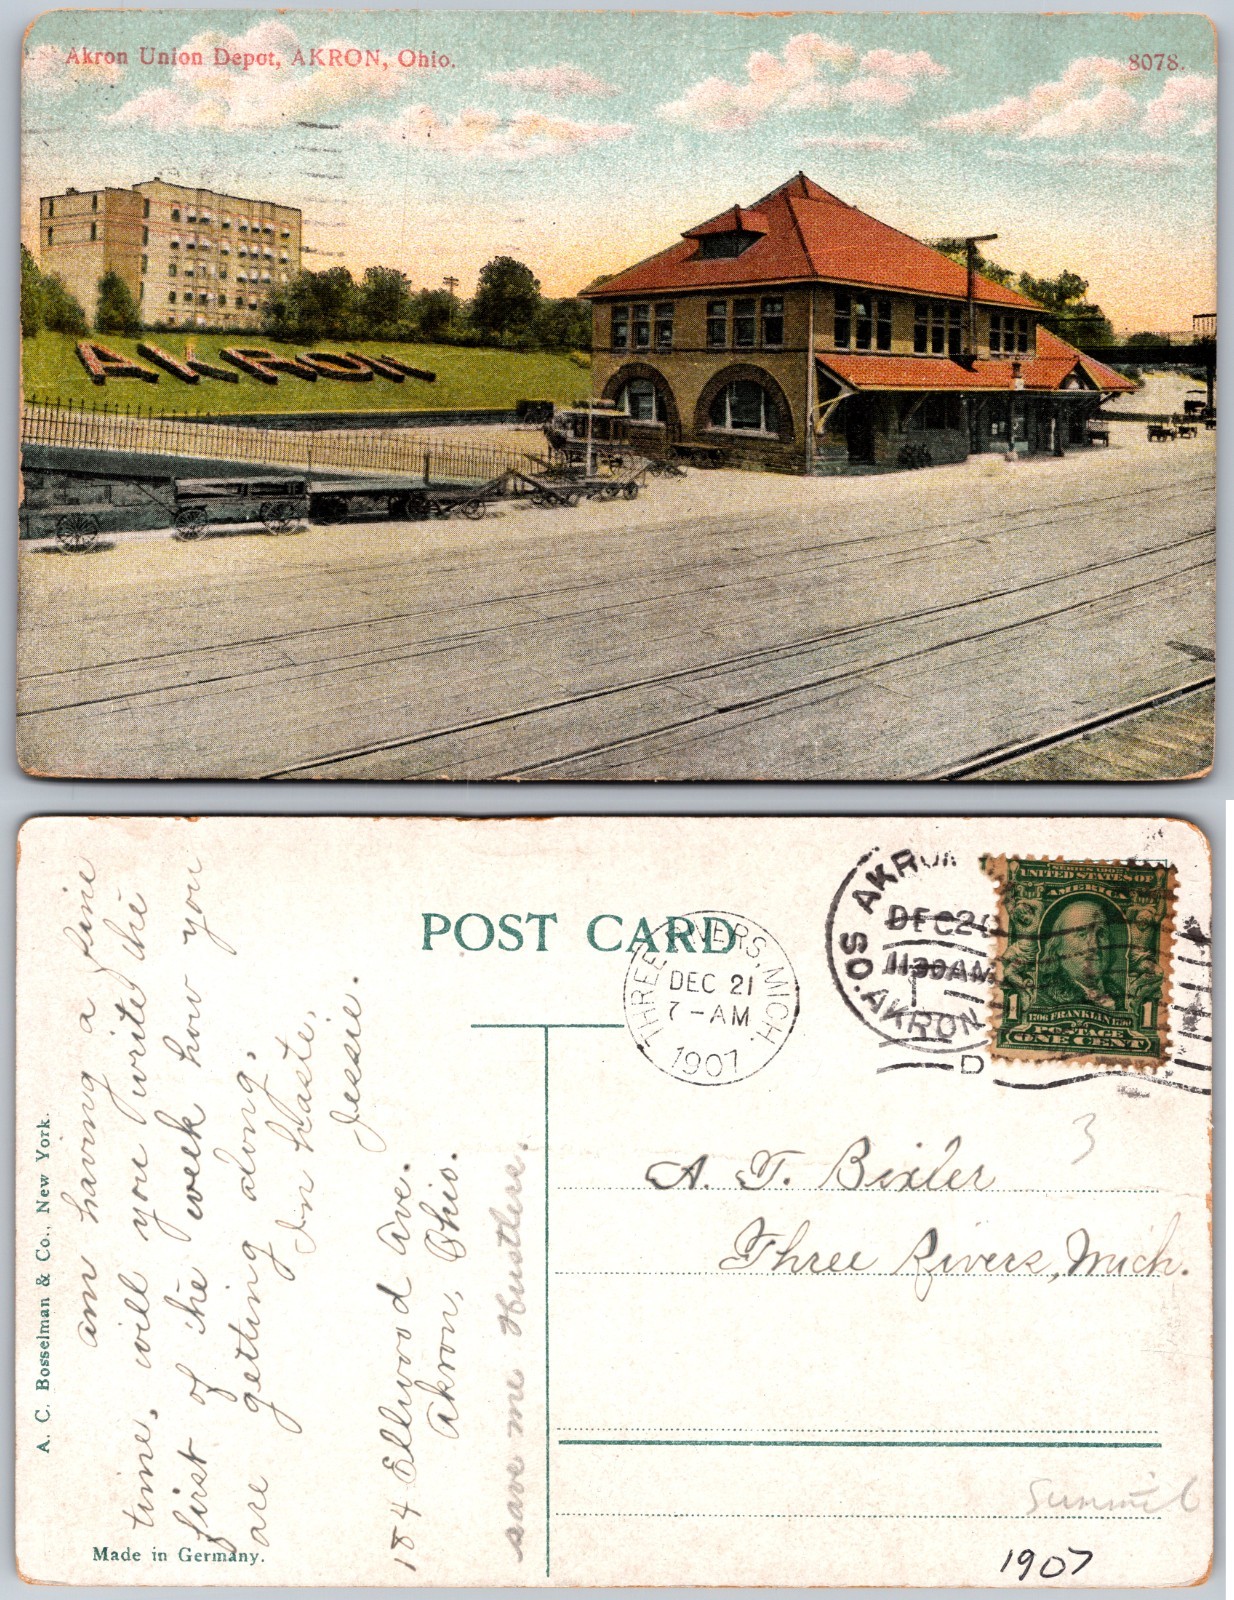 Akron Union Depot, AKRON, Ohio.
8078.
AKRON
A. C. Bosselman & Co., New York.
am having a fine
time, will you write the
first of the week how you
are getting along,
In haste,
Jessie.
184 Ellwood Ave.
Akron, Ohio.
save me Hustlers.
Made in Germany.
POST CARD
THREE RIVERS, MICH.
DEC 21
7-AM
1907
AKRON
DEC 20
1130 AM
SO. AKRON
D
SERIES 1902
UNITED STATES OF
AMERICA
1 1706 FRANKLIN 1790 1
POSTAGE
ONE CENT
3
A. F. Bixler
Three Rivers, Mich.
Summit
1907